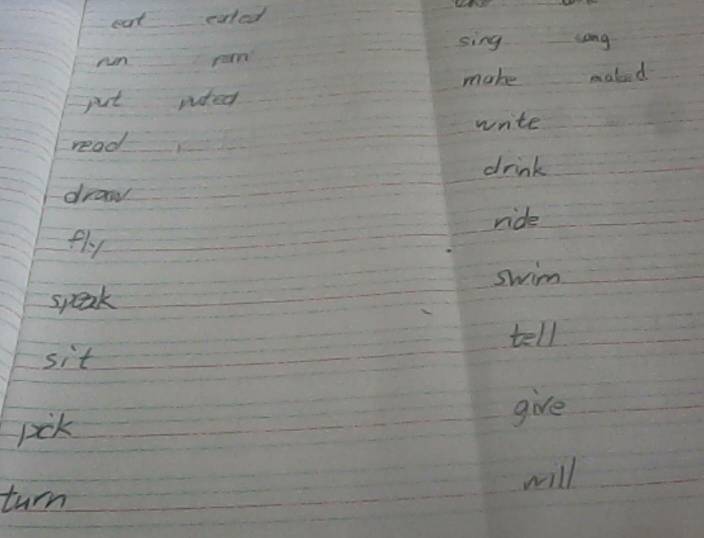 eat eated
run
put puted
read
draw
fly
speak
sit
pick
turn
sing sang
make maked
write
drink
ride
swim
tell
give
will